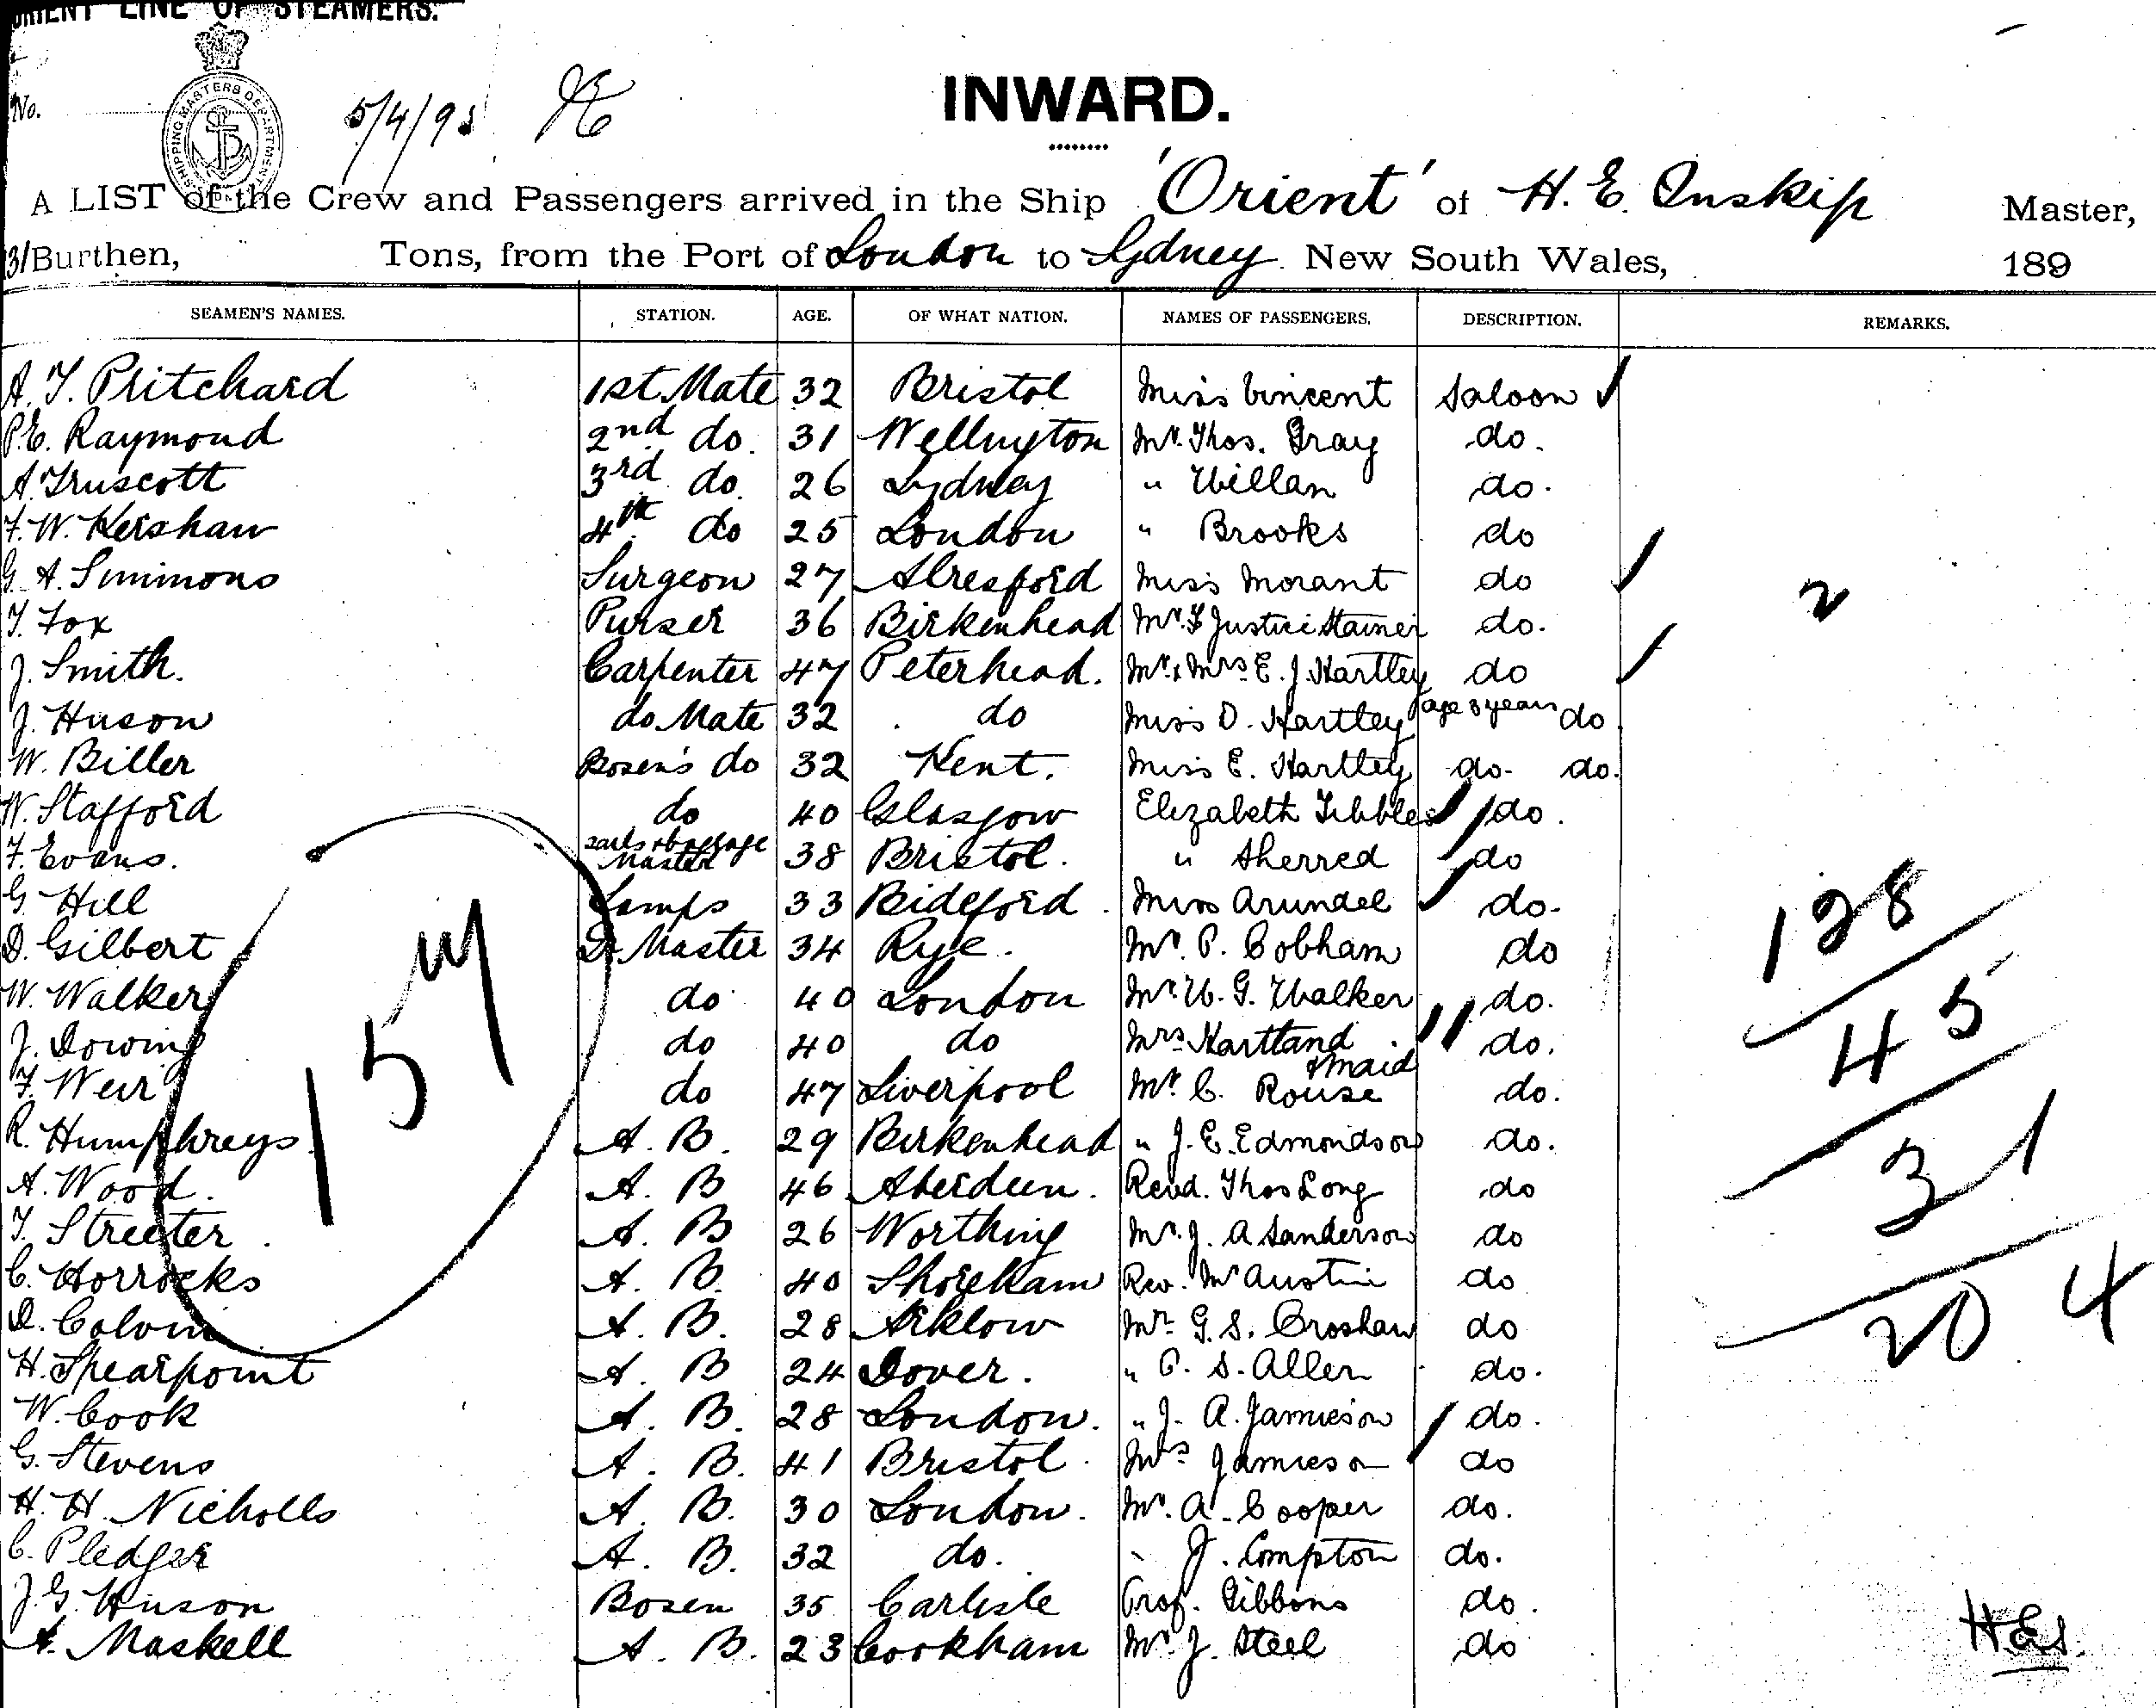 ORIENT LINE OF STEAMERS.
No.
SHIPPING MASTERS DEPARTMENT
5/4/95
INWARD.
A LIST of the Crew and Passengers arrived in the Ship 'Orient' of H. E. Inskip Master,
Burthen, Tons, from the Port of London to Sydney New South Wales, 189
SEAMEN'S NAMES. STATION. AGE. OF WHAT NATION. NAMES OF PASSENGERS. DESCRIPTION. REMARKS.
A. T. Pritchard 1st Mate 32 Bristol Miss Vincent Saloon
P.E. Raymond 2nd do. 31 Wellington Mr. Thos. Gray do.
A. Truscott 3rd do. 26 Sydney " Willan do.
F. W. Kershaw 4th do 25 London " Brooks do
G. A. Simmons Surgeon 27 Alresford Miss Morant do
T. Fox Purser 36 Birkenhead Mr. Justice do. 2
J. Smith. Carpenter 47 Peterhead. Mr. & Mrs E. J. Hartley do
J. Huson do Mate 32 do Miss D. Hartley age 3 years do
W. Biller Bosen's do 32 Kent. Miss E. Hartley do. do.
W. Stafford do 40 Glasgow Elizabeth Tibbles do.
F. Evans. & baggage Master 38 Bristol. " Sherred do
G. Hill Lamps 33 Bideford Miss Arundel do.
D. Gilbert Q. Master 34 Rye. Mr. P. Cobham do
W. Walker do 40 London Mr. W. G. Walker do.
J. Dowing do 40 do Mrs Hartland & maid do.
F. Weir do 47 Liverpool Mr. C. Rouse do.
R. Humphreys. A. B. 29 Birkenhead " J. E. Edmondson do.
A. Wood. A. B 46 Aberdeen. Revd. Thos Long do
T. Streeter. A. B 26 Worthing Mr. J. A Sanderson do
C. Horrocks A. B. 40 Shoreham Rev. Mr Austin do
D. Colvin A. B. 28 Arklow Mr. G. S. Croshaw do
H. Spearpoint A. B 24 Dover. " P. S. Allen do.
W. Cook A. B. 28 London. " J. A. Jamieson do.
G. Stevens A. B. 41 Bristol Mrs Jamieson do
H. H. Nicholls A. B. 30 London. Mr. A. Cooper do.
C. Pledger A. B. 32 do. " J. Compton do.
J. G. Hinson Bosen 35 Carlisle Prof. Gibbons do.
A. Maskell A. B. 23 Cookham Mr. J. Steel do
157
128
45
31
204
H.E.I.